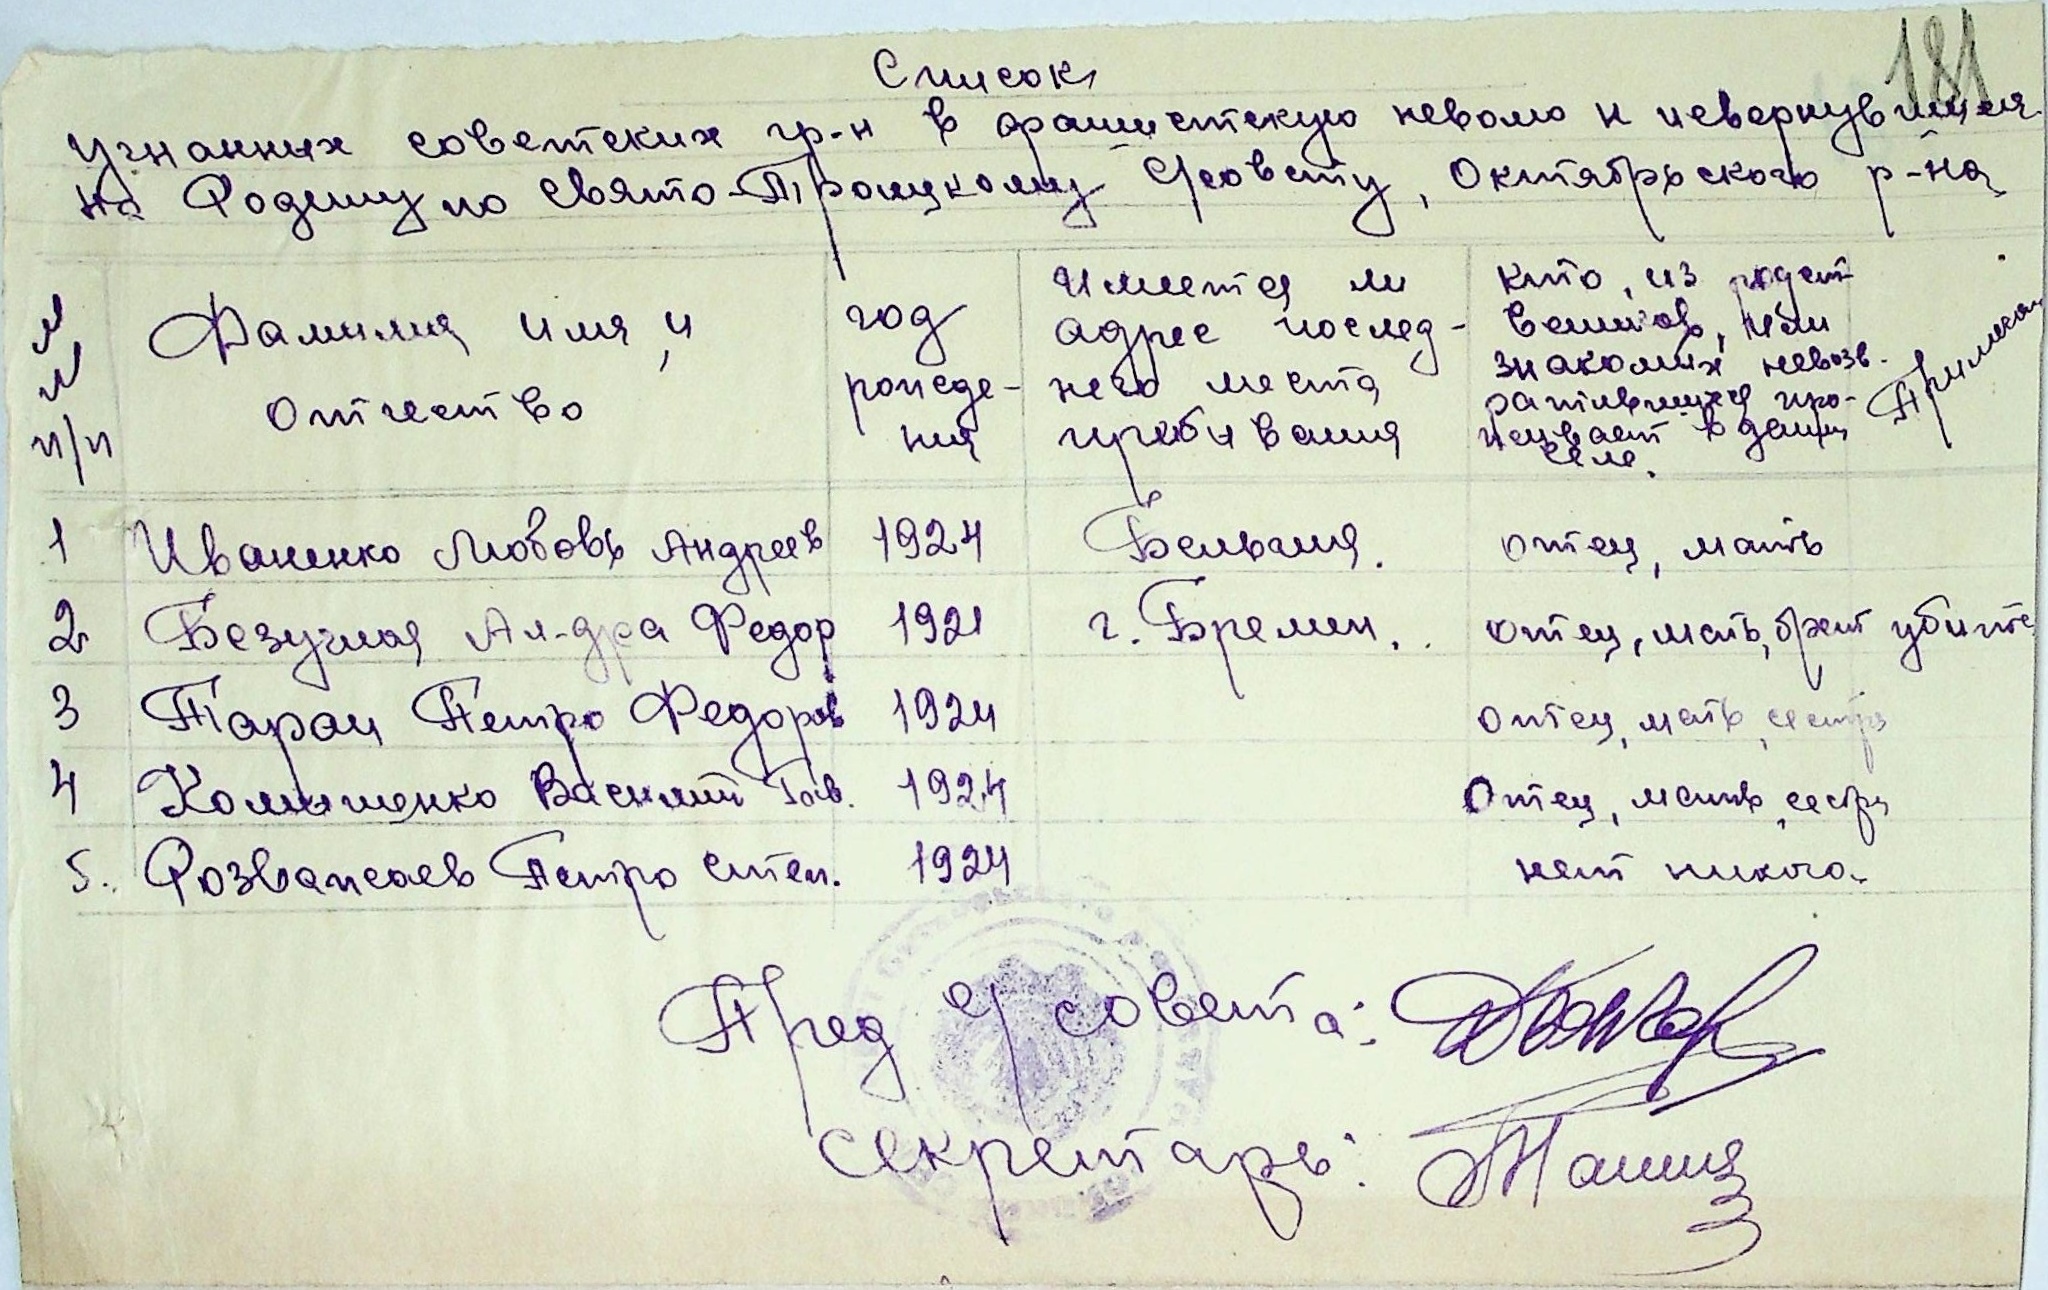 181
Список
угнанных советских гр-н в фашистскую неволю и невернувшихся
на Родину по Свято-Троицкому с/совету, Октябрьского р-на
№
№
п/п
Фамилия имя, и
отчество
год
рожде-
ния
Имеется ли
адрес послед-
него места
пребывания
кто, из родст-
венников, или
знакомых невозв-
ратившихся про-
живает в данном
селе.
Примечан
1 Иваненко Любовь Андреев 1924 Бельгия. отец, мать
2 Безуглая Ал-дра Федор 1921 г. Бремен. отец, мать, брат убитые
3 Таран Петро Федоров 1924 отец, мать, сестра
4 Комышенко Василий Гав. 1924 Отец, мать, сестра
5. Розважаев Петро степ. 1924 нет никого.
Пред с/совета:
секретарь: